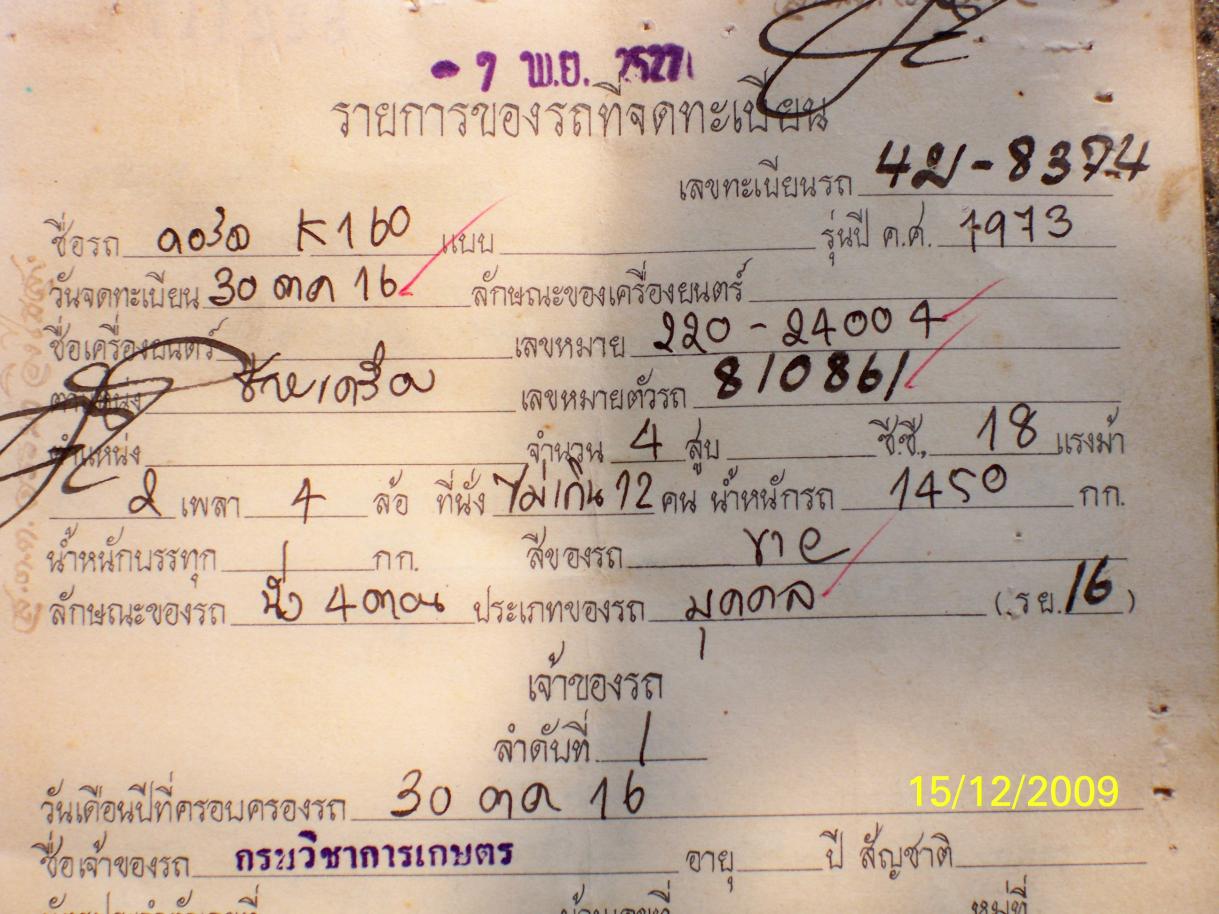 - 7 พ.ย. 2527
รายการของรถที่จดทะเบียน
เลขทะเบียนรถ
ชื่อรถ K160 แบบ รุ่นปี ค.ศ. 1973
วันจดทะเบียน 30 ตค 16 ลักษณะของเครื่องยนตร์
ชื่อเครื่องยนตร์ เลขหมาย 220 - 24004
เลขหมายตัวรถ 810861
ตำแหน่ง จำนวน 4 สูบ ซี.ซี., 18 แรงม้า
2 เพลา 4 ล้อ ที่นั่ง ไม่เกิน 12 คน น้ำหนักรถ 1450 กก.
น้ำหนักบรรทุก กก. สีของรถ
ลักษณะของรถ นั่ง 4 ตอน ประเภทของรถ (ร ย. 16)
เจ้าของรถ
ลำดับที่ 1
วันเดือนปีที่ครอบครองรถ 30 ตค 16
15/12/2009
ชื่อเจ้าของรถ กรมวิชาการเกษตร อายุ ปี สัญชาติ
หมู่ที่